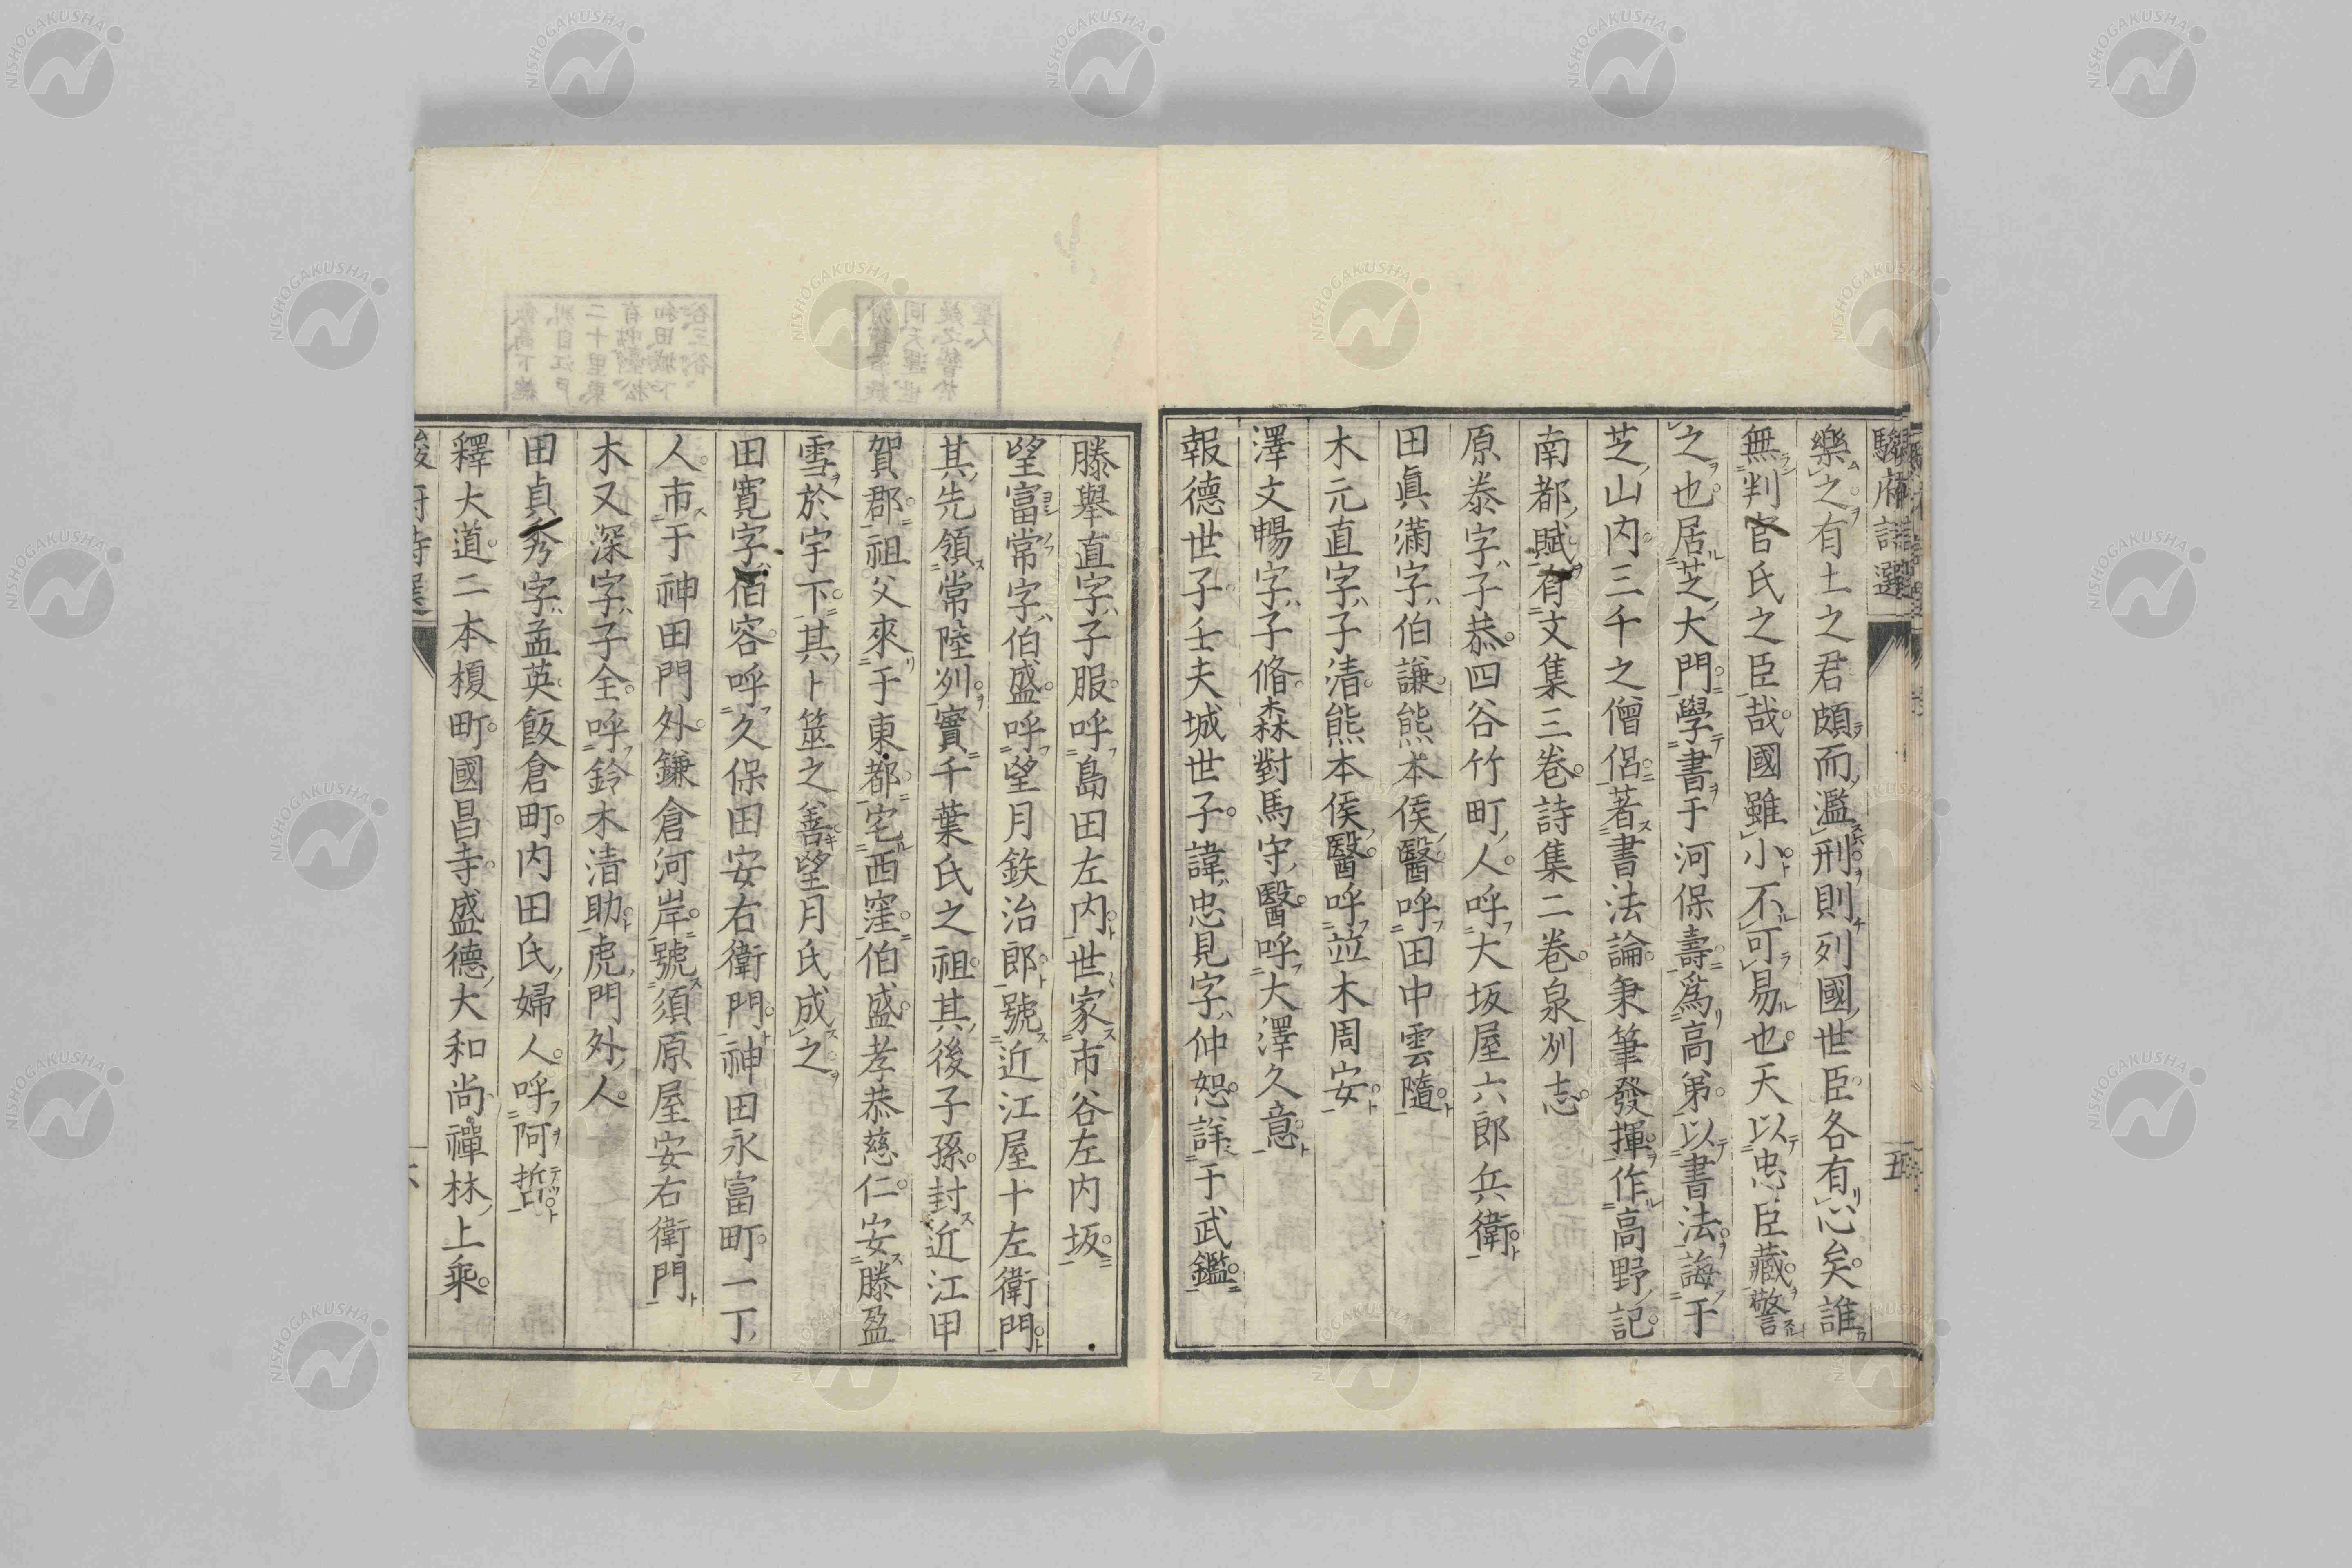 駿府詩選
五
樂之有土之君頗而濫刑則列國世臣各有心矣誰
無判官氏之臣哉國雖小不可易也天以忠臣藏警
之也居芝大門學書于河保壽爲高第以書法誨于
芝山内三千之僧侶著書法論秉筆發揮作高野記
南都賦有文集三卷詩集二卷泉州志
原泰字子恭四谷竹町人呼大坂屋六郎兵衛
田眞滿字伯謙熊本侯醫呼田中雲隨
木元直字子清熊本侯醫呼竝木周安
澤文暢字子脩森對馬守醫呼大澤久意
報德世子壬夫城世子諱忠見字仲恕詳于武鑑
滕舉直字子服呼島田左内世家市谷左内坂
望富常字伯盛呼望月鉄治郎號近江屋十左衛門
其先領常陸州實千葉氏之祖其後子孫封近江甲
賀郡祖父來于東都宅西窪伯盛孝恭慈仁安滕盈
雪於宇下其卜筮之善望月氏成之
田寬字伯容呼久保田安右衛門神田永富町一丁
人市于神田門外鎌倉河岸號須原屋安右衛門
木又深字子全呼鈴木清助虎門外人
田貞秀字孟英飯倉町内田氏婦人呼阿哲
釋大道二本榎町國昌寺盛德大和尚禪林上乘